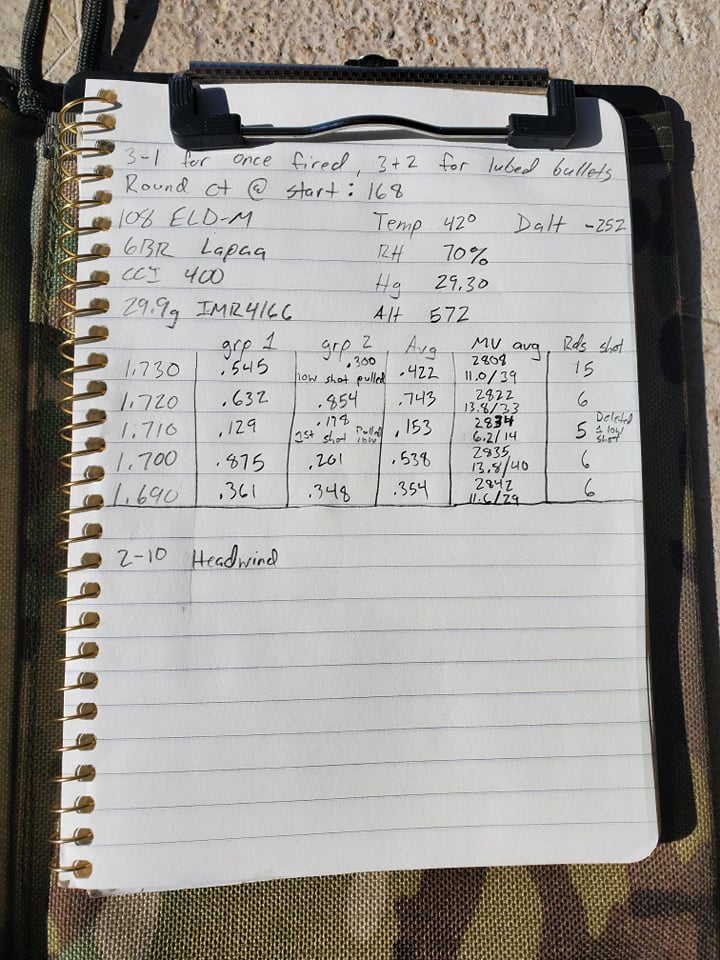 3-1 for once fired, 3+2 for lubed bullets
Round ct @ start: 168
108 ELD-M Temp 42° Dalt -252
6BR Lapua RH 70%
CCI 400 Hg 29.30
29.9g IMR4166 Alt 572
grp 1 grp 2 Avg MV avg Rds shot
1.730 .545 .300 low shot pulled .422 2808 11.0/39 15
1.720 .632 .854 .743 2822 13.8/33 6
1.710 .129 .178 1st shot Pulled low .153 2834 6.2/14 5 Deleted 1 low shot
1.700 .875 .201 .538 2835 13.8/40 6
1.690 .361 .348 .354 2842 11.6/29 6
2-10 Headwind